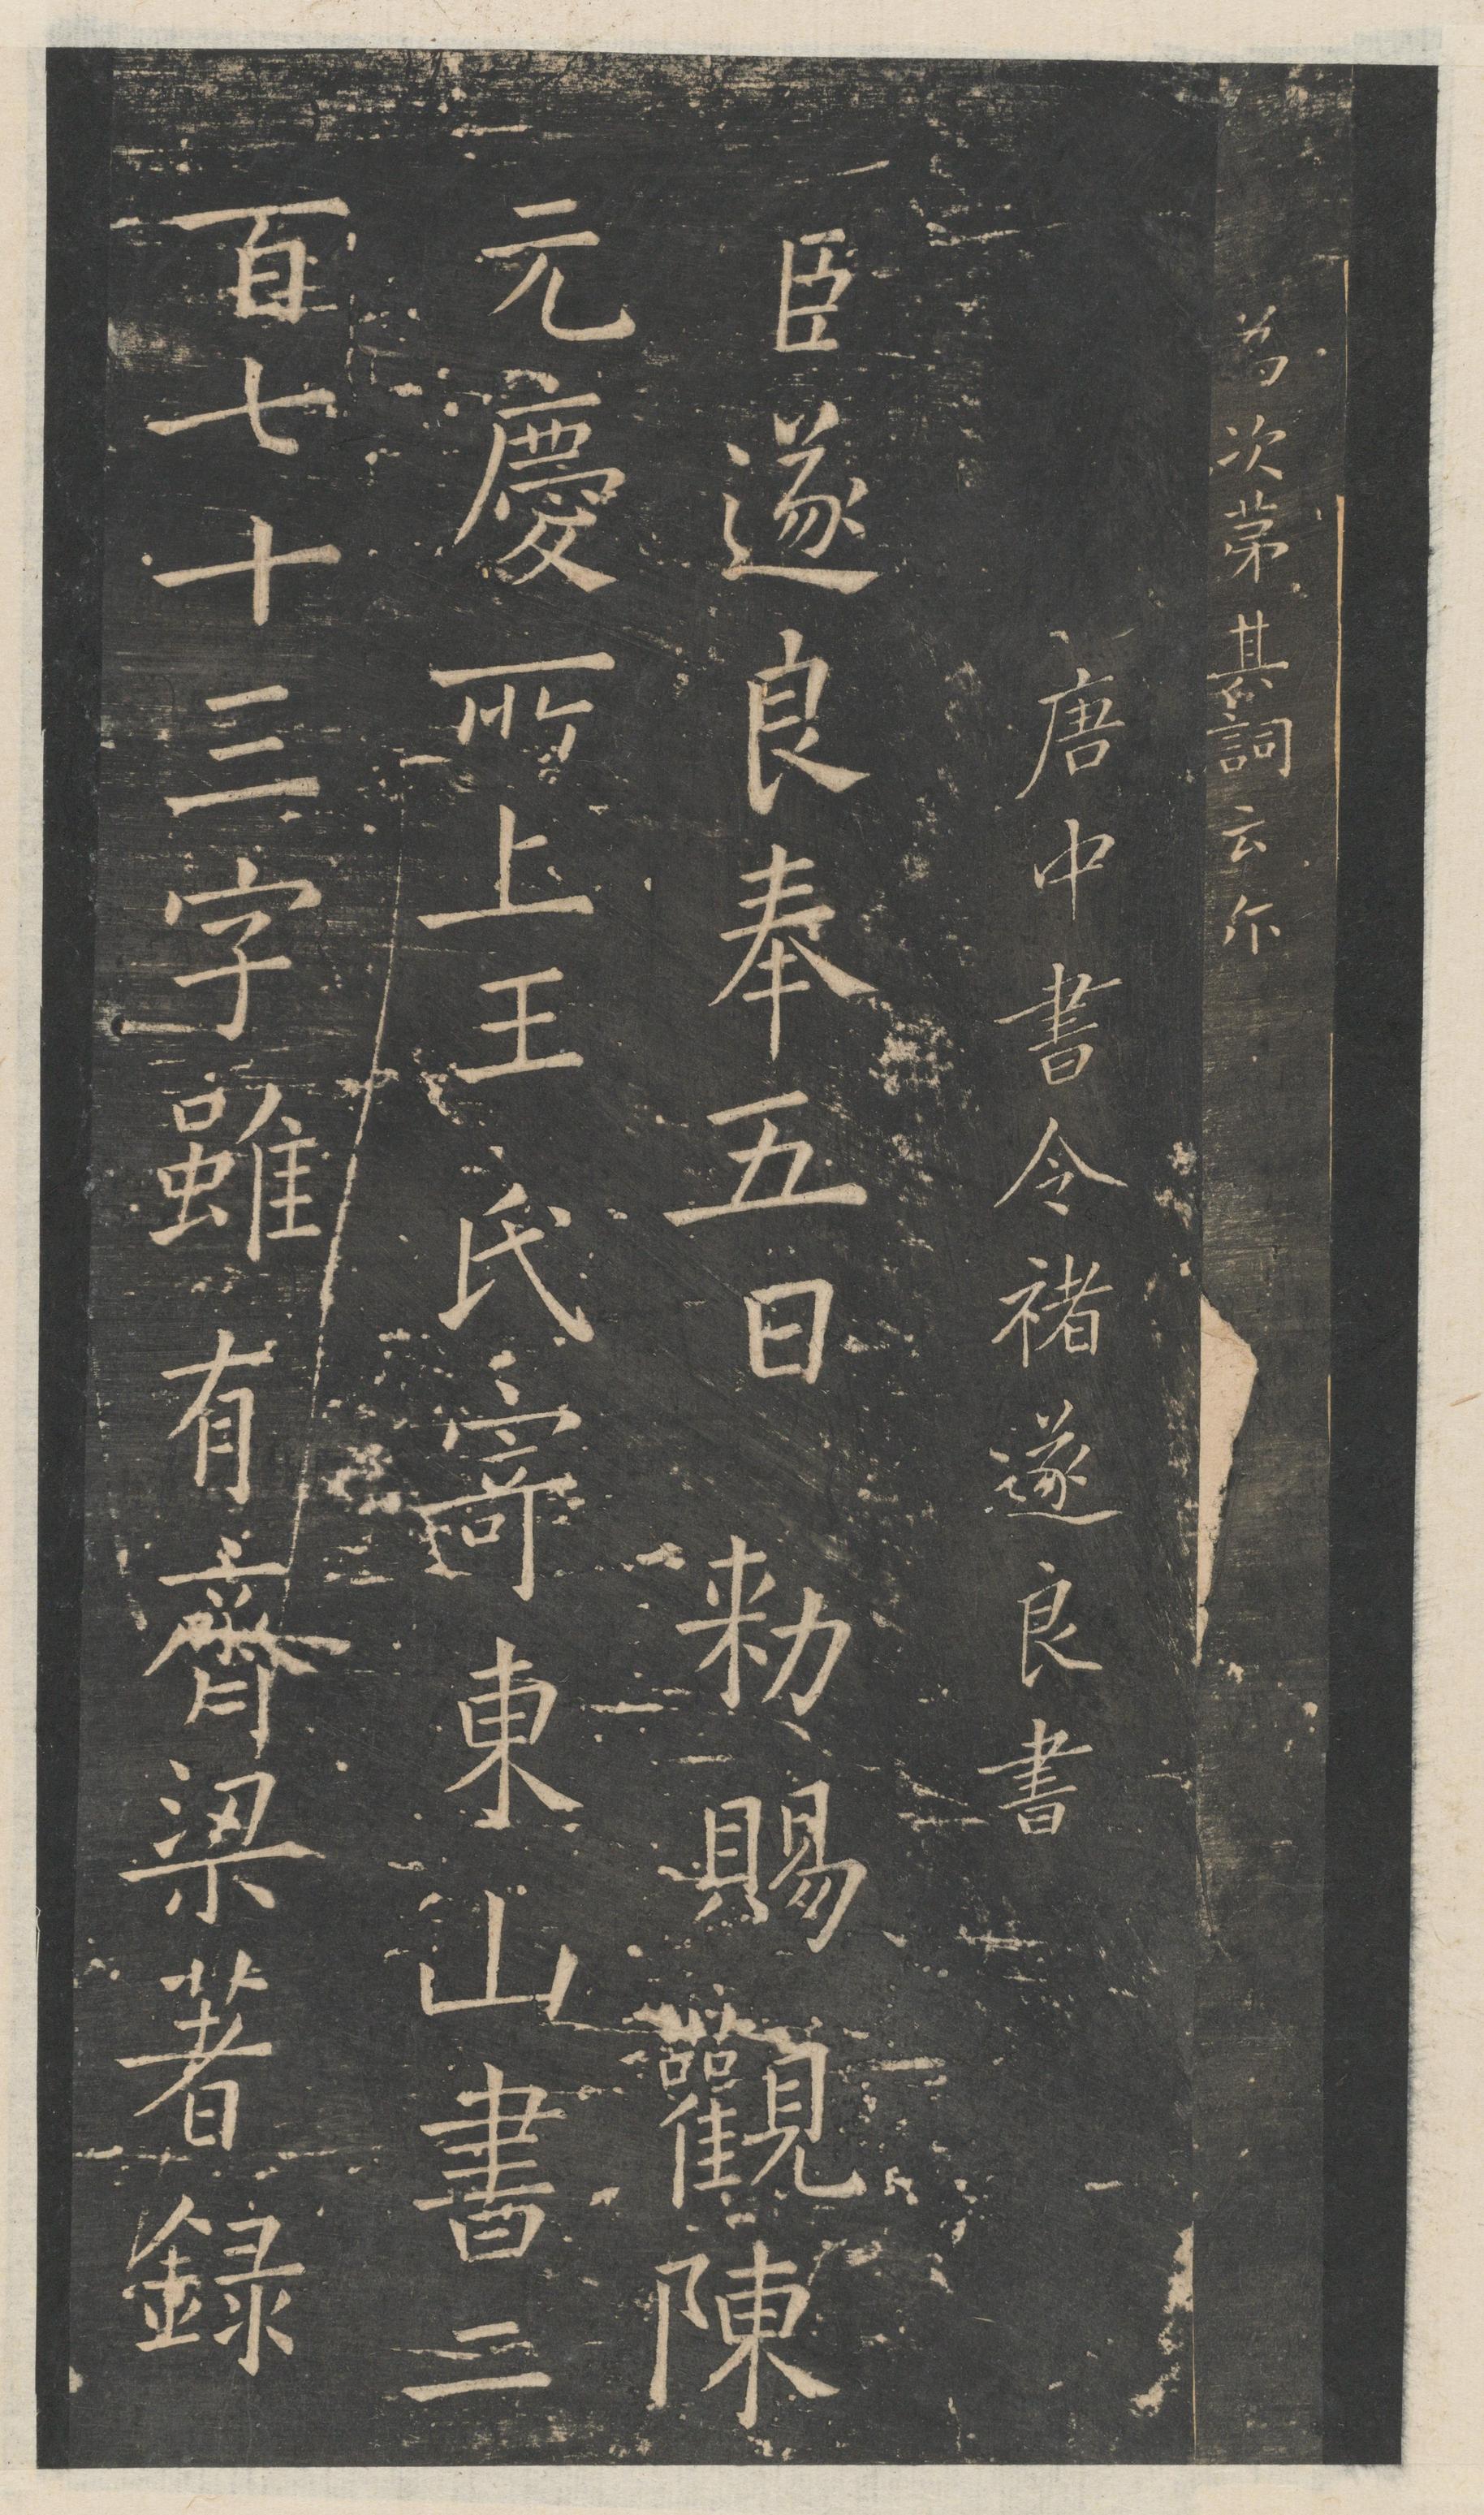 為次苐其詞云尒
唐中書令褚遂良書
臣遂良奉五日敕賜觀陳
元慶所上王氏寄東山書二
百七十三字雖有齊梁著録